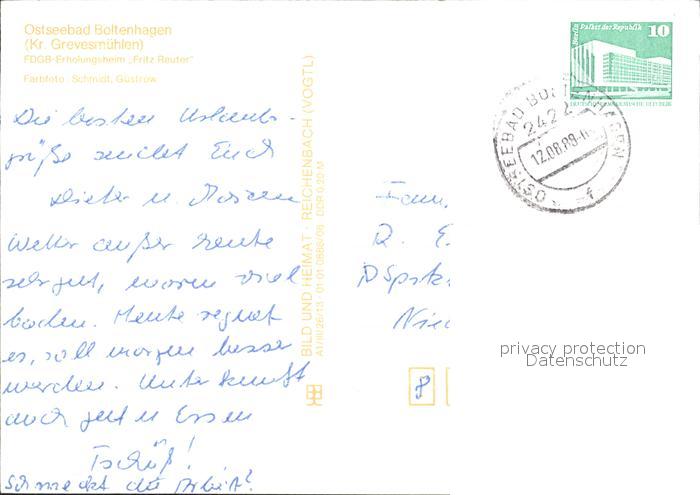 Ostseebad Boltenhagen
(Kr. Grevesmühlen)
FDGB-Erholungsheim „Fritz Reuter"
Farbfoto: Schmidt, Güstrow
Die besten Urlaubs-
grüße sendet Euch
Dieter u.
Wetter außer heute
sehr gut, waren viel
baden. Heute regnet
es, soll morgen besser
werden. Unterkunft
auch gut u Essen
Tschüß!
Schmeckt die Arbeit?
BILD UND HEIMAT · REICHENBACH (VOGTL)
Fam.
R. E.
Nie
Berlin Palast der Republik
10
DEUTSCHE DEMOKRATISCHE REPUBLIK
OSTSEEBAD BOLTENHAGEN
2424
12.08.88
f
privacy protection
Datenschutz